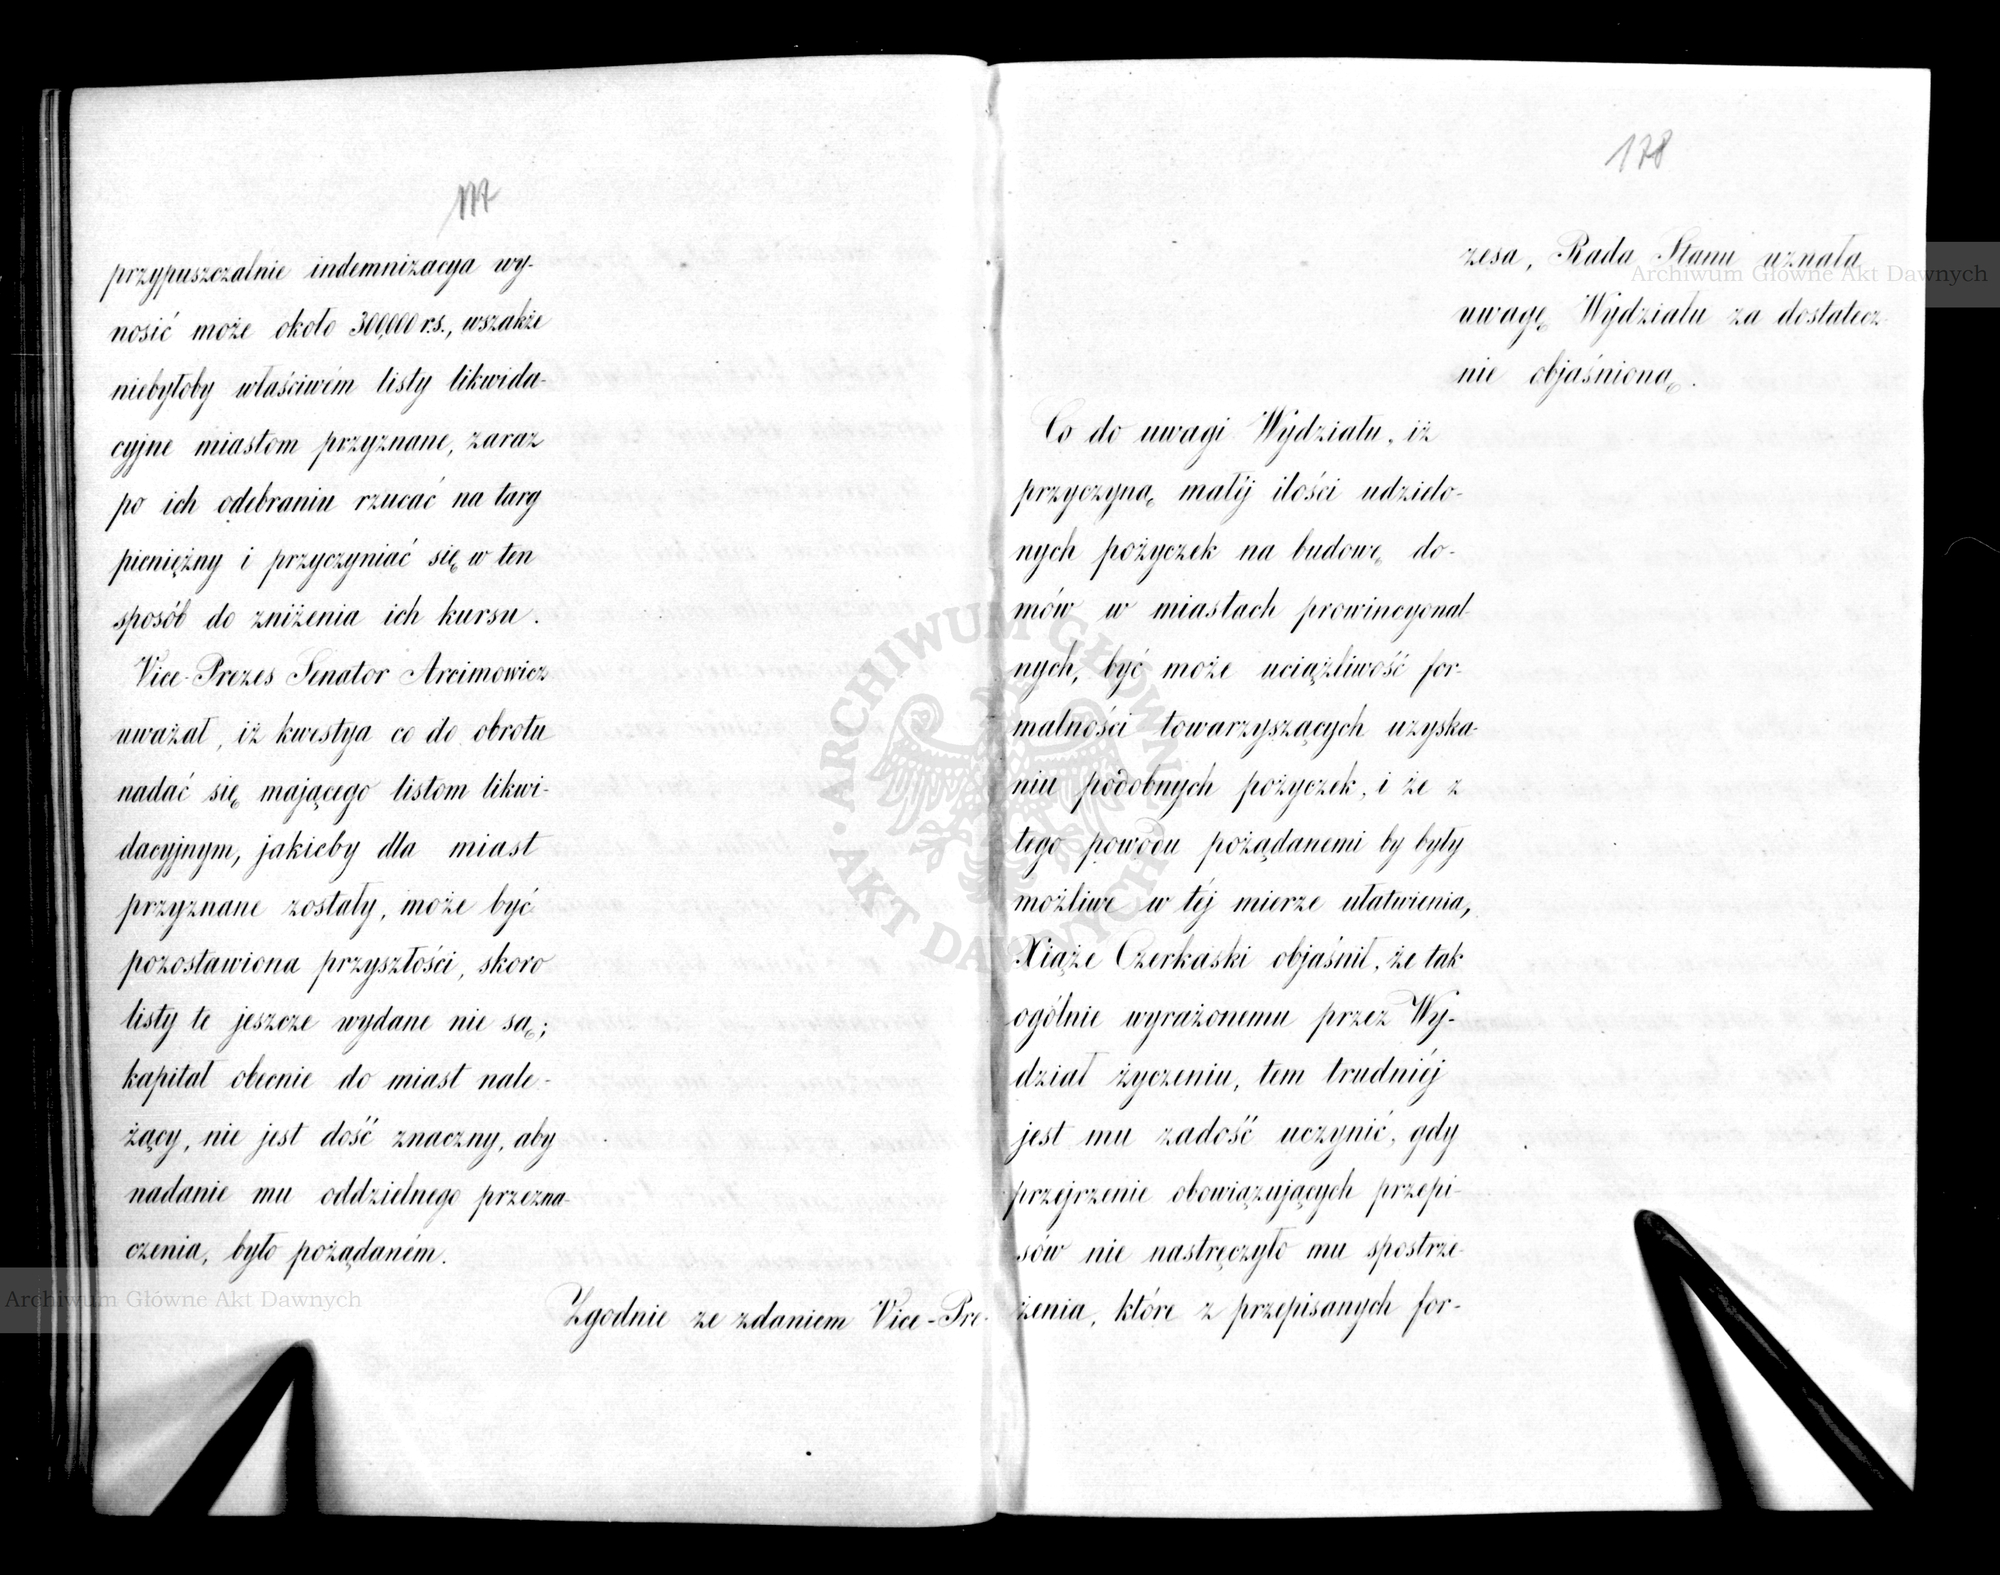 177
przypuszczalnie indemnizacya wy-
nosić może około 300,000 rs., wszakże
niebyłoby właściwém listy likwida-
cyjne miastom przyznane, zaraz
po ich odebraniu rzucać na targ
pieniężny i przyczyniać się w ten
sposób do zniżenia ich kursu.
Vice-Prezes Senator Arcimowicz
uważał, iż kwestya co do obrotu
nadać się mającego listom likwi-
dacyjnym, jakieby dla miast
przyznane zostały, może być
pozostawiona przyszłości, skoro
listy te jeszcze wydane nie są;
kapitał obecnie do miast nale-
żący, nie jest dość znaczny, aby
nadanie mu oddzielnego przezna-
czenia, było pożądaném.
Zgodnie ze zdaniem Vice-Pre-
178
zesa, Rada Stanu uznała
uwagę Wydziału za dostatecz-
nie objaśnioną.
Co do uwagi Wydziału, iż
przyczyną małéj ilości udzielo-
nych pożyczek na budowę do-
mów w miastach prowincyonal-
nych, być może uciążliwość for-
malności towarzyszących uzyska-
niu podobnych pożyczek, i że z
tego powodu pożądanemi by były
możliwe w téj mierze ułatwienia,
Xiąże Czerkaski objaśnił, że tak
ogólnie wyrażonemu przez Wy-
dział życzeniu, tem trudniéj
jest mu zadość uczynić, gdy
przejrzenie obowiązujących przepi-
sów nie nastręczyło mu spostrze-
żenia, które z przepisanych for-
Archiwum Główne Akt Dawnych
Archiwum Główne Akt Dawnych
ARCHIWUM GŁÓWNE
AKT DAWNYCH